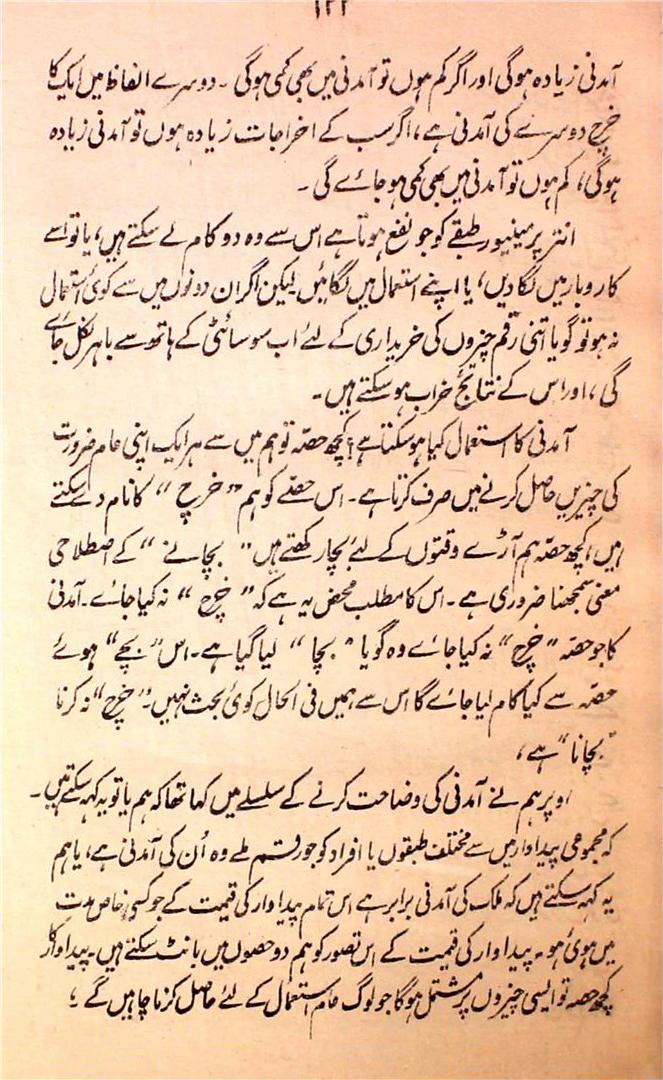 ۱۲۲
آمدنی زیادہ ہوگی اور اگر کم ہوں تو آمدنی میں بھی کمی ہوگی ۔ دوسرے الفاظ میں ایک کا
خرچ دوسرے کی آمدنی ہے، اگر سب کے اخراجات زیادہ ہوں تو آمدنی زیادہ
ہوگی، کم ہوں تو آمدنی میں بھی کمی ہو جائے گی ۔
انٹر پرینیور طبقے کو جو نفع ہوتا ہے اس سے وہ دو کام لے سکتے ہیں، یا تو اسے
کاروبار میں لگا دیں، یا اپنے استعمال میں لگائیں لیکن اگر ان دونوں میں سے کوئی استعمال
نہ ہو تو گویا اتنی رقم چیزوں کی خریداری کے لئے اب سوسائٹی کے ہاتھ سے باہر نکل جائے
گی، اور اس کے نتائج خراب ہو سکتے ہیں۔
آمدنی کا استعمال کیا ہو سکتا ہے؟ کچھ حصہ تو ہم میں سے ہر ایک اپنی عام ضرورت
کی چیزیں حاصل کرنے میں صرف کرتا ہے۔ اس حصے کو ہم " خرچ " کا نام دے سکتے
ہیں، کچھ حصہ ہم آڑے وقتوں کے لئے بچا رکھتے ہیں " بچانے " کے اصطلاحی
معنی سمجھنا ضروری ہے۔ اس کا مطلب محض یہ ہے کہ " خرچ " نہ کیا جائے۔ آمدنی
کا جو حصہ " خرچ " نہ کیا جائے وہ گویا " بچا " لیا گیا ہے۔ اس "بچے" ہوئے
حصہ سے کیا کام لیا جائے گا اس سے ہمیں فی الحال کوئی بحث نہیں۔ "خرچ" نہ کرنا
"بچانا" ہے،
اوپر ہم نے آمدنی کی وضاحت کرنے کے سلسلے میں کہا تھا کہ ہم یا تو یہ کہہ سکتے ہیں۔
کہ مجموعی پیداوار میں سے مختلف طبقوں یا افراد کو جو رقم ملے وہ اُن کی آمدنی ہے، یا ہم
یہ کہہ سکتے ہیں کہ ملک کی آمدنی برابر ہے اس تمام پیداوار کی قیمت کے جو کسی خاص مدت
میں ہوئی ہو۔ پیداوار کی قیمت کے اس تصور کو ہم دو حصوں میں بانٹ سکتے ہیں۔ پیداوار کا
کچھ حصہ تو ایسی چیزوں پر مشتمل ہوگا جو لوگ عام استعمال کے لئے حاصل کرنا چاہیں گے ؛